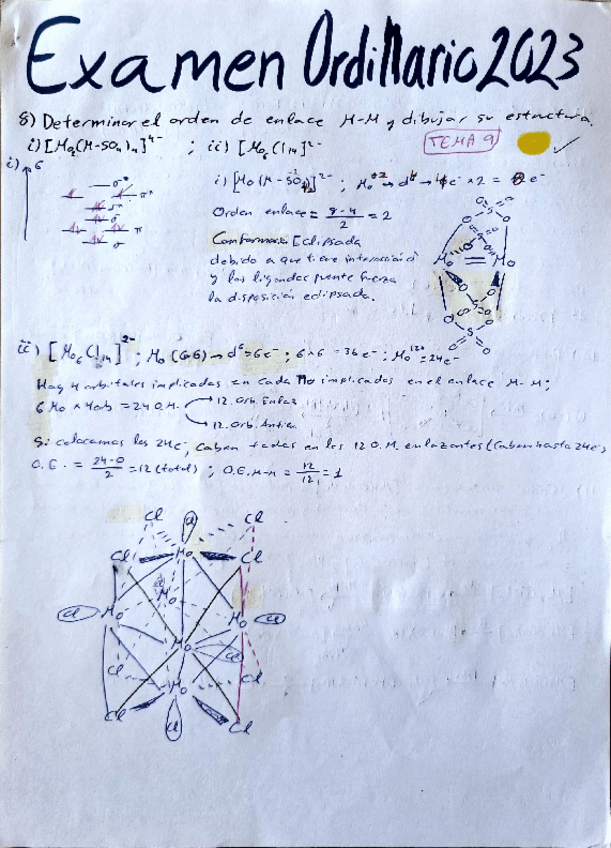 Examen Ordinario 2023
8) Determinar el orden de enlace M-M y dibujar su estructura.
i) [Mo2(M-SO4)4]4- ; ii) [Mo6Cl14]2-
TEMA 9
i)
σ*
π
σ
Orden enlace = 8-4/2 = 2
Conformación Eclipsada
debido a que tiene interacción
y los ligandos puente fuerza
la disposición eclipsada.
ii) [Mo6Cl14]2- ; Mo (G6) → d6 = 6e- ; 6x6 = 36e- ; Mo 12+ = 24e-
Hay 4 orbitales implicados en cada Mo implicados en el enlace M-M;
6 Mo x 4 orb = 24 O.M.
12. Orb. Enlaz
12. Orb. Antien.
Si colocamos los 24e-, caben todos en los 12 O.M. enlazantes (Caben hasta 24e-)
O.E. = 24-0/2 = 12 (total) ; O.E.M-M = 12/12 = 1
Cl Cl Cl
Cl Mo Cl
Cl Mo Mo Mo Cl
Mo Cl
Cl Mo Cl
Cl Cl Cl